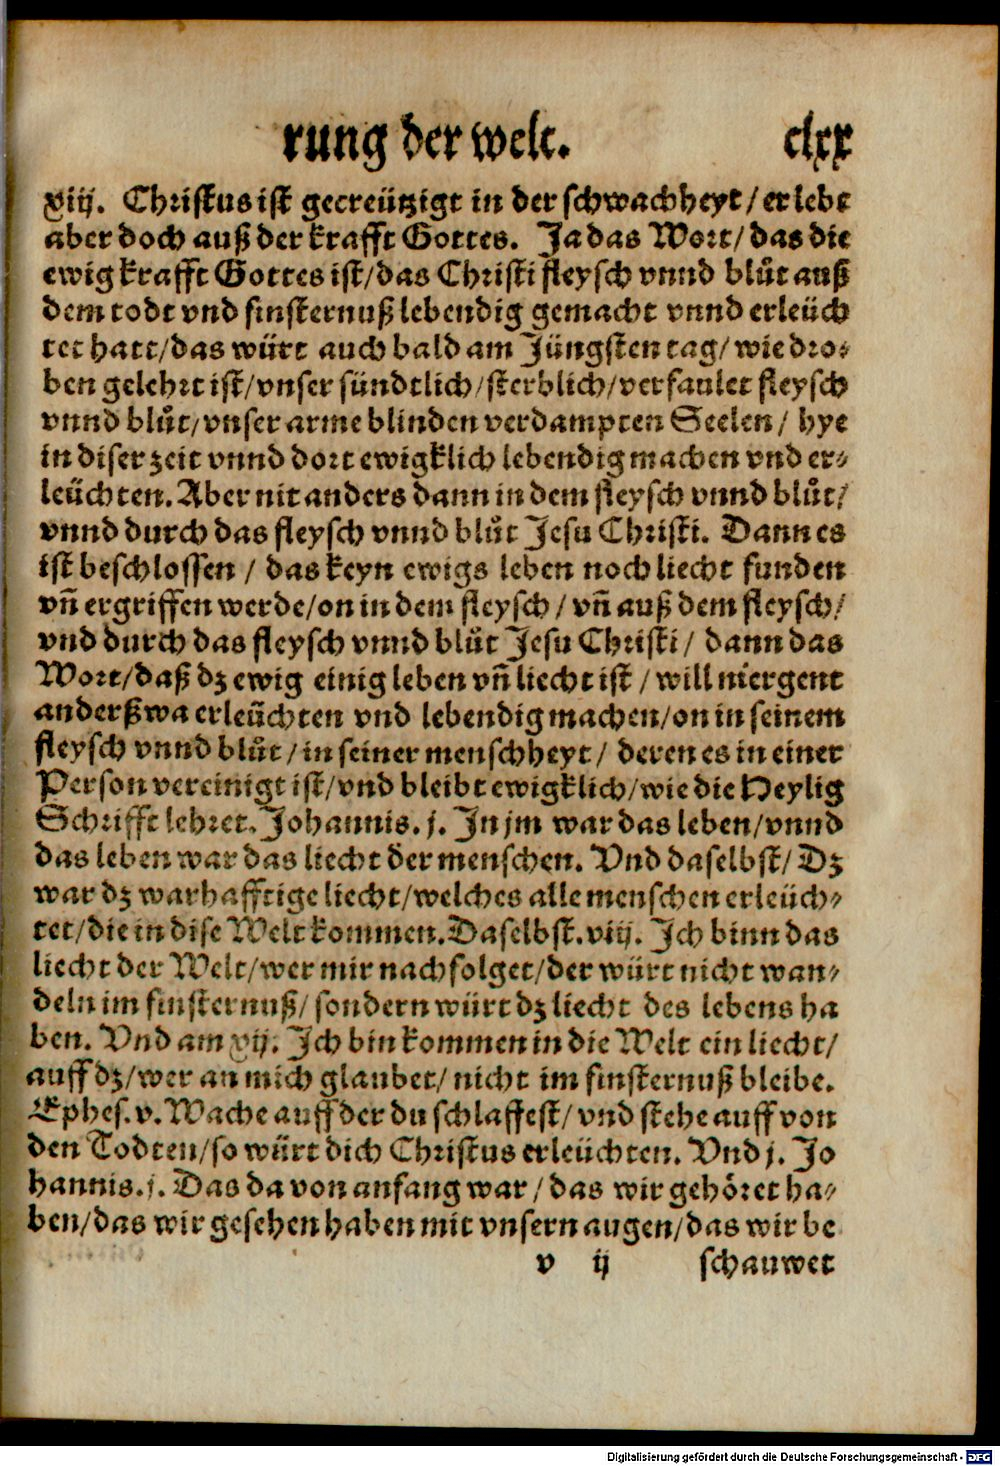 rung der welt. clxx
xiij. Christus ist gecreützigt in der schwachheyt/ er lebt
aber doch auß der krafft Gottes. Ja das Wort/ das die
ewig krafft Gottes ist/ das Christi fleysch vnnd blůt auß
dem todt vnd finsternuß lebendig gemacht vnnd erleüch
tet hatt/ das würt auch bald am Jüngsten tag/ wie dro⸗
ben gelehrt ist/ vnser sündtlich/ sterblich/ verfaulet fleysch
vnnd blůt/ vnser arme blinden verdampten Seelen/ hye
in diser zeit vnnd dort ewigklich lebendig machen vnd er⸗
leüchten. Aber nit anders dann in dem fleysch vnnd blůt/
vnnd durch das fleysch vnnd blůt Jesu Christi. Dann es
ist beschlossen/ das keyn ewigs leben noch liecht funden
vn̄ ergriffen werde/ on in dem fleysch/ vn̄ auß dem fleysch/
vnd durch das fleysch vnnd blůt Jesu Christi/ dann das
Wort/ daß dz ewig einig leben vn̄ liecht ist/ will niergent
anderßwa erleüchten vnd lebendig machen/ on in seinem
fleysch vnnd blůt/ in seiner menschheyt/ deren es in einer
Person vereinigt ist/ vnd bleibt ewigklich/ wie die Heylig
Schrifft lehret. Johannis. j. In jm war das leben/ vnnd
das leben war das liecht der menschen. Vnd daselbst/ Dz
war dz warhafftige liecht/ welches alle menschen erleüch⸗
tet/ die in dise Welt kommen. Daselbst. viij. Ich binn das
liecht der Welt/ wer mir nachfolget/ der würt nicht wan⸗
deln im finsternuß/ sondern würt dz liecht des lebens ha
ben. Vnd am xij. Ich bin kommen in die Welt ein liecht/
auff dz/ wer an mich glaubet/ nicht im finsternuß bleibe.
Ephes. v. Wache auff der du schlaffest/ vnd stehe auff von
den Todten/ so würt dich Christus erleüchten. Vnd j. Jo
hannis. j. Das da von anfang war/ das wir gehöret ha⸗
ben/ das wir gesehen haben mit vnsern augen/ das wir be
v ij schauwet
Digitalisierung gefördert durch die Deutsche Forschungsgemeinschaft - DFG